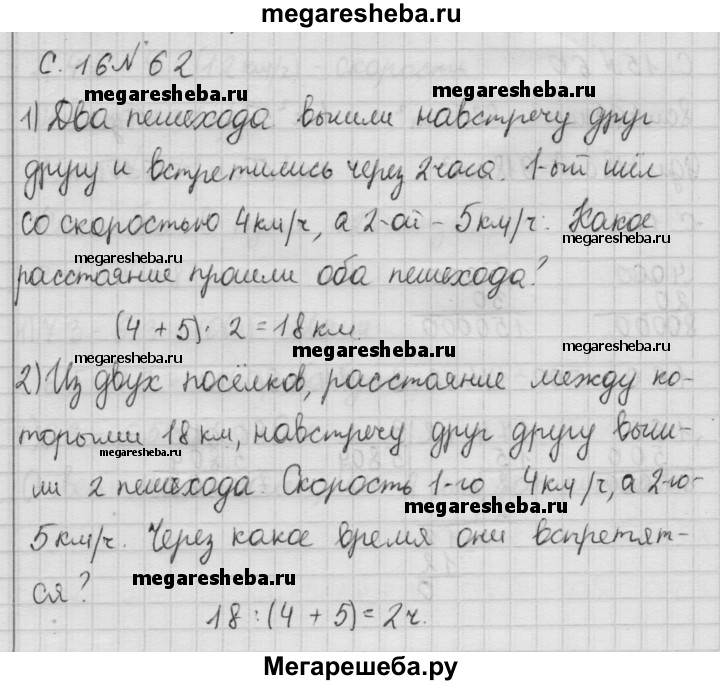 megaresheba.ru
с. 16 № 62
megaresheba.ru megaresheba.ru
1) Два пешехода вышли навстречу друг
другу и встретились через 2 часа. 1-ый шёл
со скоростью 4 км/ч, а 2-ой - 5 км/ч. Какое
megaresheba.ru megaresheba.ru
расстояние прошли оба пешехода?
(4 + 5) · 2 = 18 км.
megaresheba.ru megaresheba.ru megaresheba.ru
2) Из двух посёлков, расстояние между ко-
торыми 18 км, навстречу друг другу выш-
megaresheba.ru
ли 2 пешехода. Скорость 1-го 4 км/ч, а 2-го-
megaresheba.ru
5 км/ч. Через какое время они встретят-
megaresheba.ru
ся?
18 : (4 + 5) = 2 ч.
Мегарешеба.ру